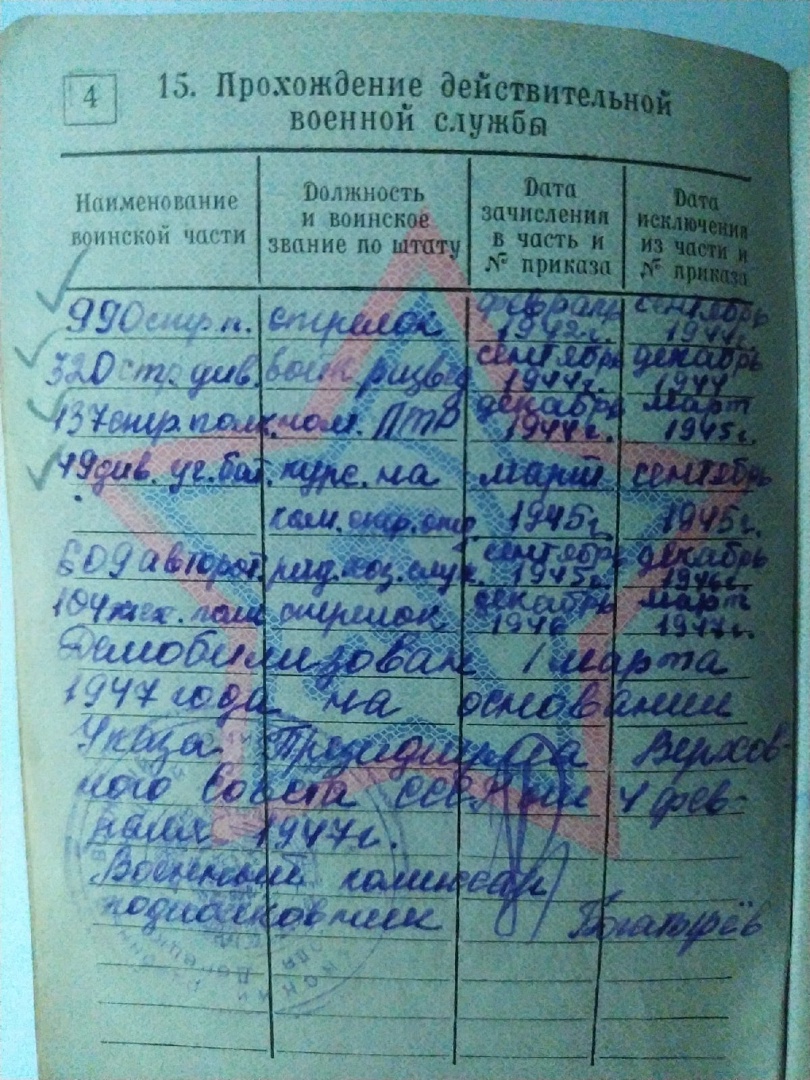 4
15. Прохождение действительной
военной службы
Наименование
воинской части
Должность
и воинское
звание по штату
Дата
зачисления
в часть и
№ приказа
Дата
исключения
из части и
№ приказа
990 стр. п. стрелок февраль 1942 г. сентябрь 1944 г.
320 стр. див. войск. развед сентябрь 1944 г. декабрь 1944
137 стр. полк. ном. ПТР декабрь 1944 г. март 1945 г.
49 див. уч. бат. курс. на март сентябрь
ком. стр. отд. 1945 г. 1945 г.
609 авторот. ряд. хоз. служ. сентябрь 1945 г. декабрь 1946 г.
104 мех. полк стрелок декабрь 1946 март 1947 г.
Демобилизован 1 марта
1947 года на основании
Указа Президиума Верхов-
ного Совета СССР от 4 фев-
раля 1947 г.
Военный комиссар
подполковник Богатырёв